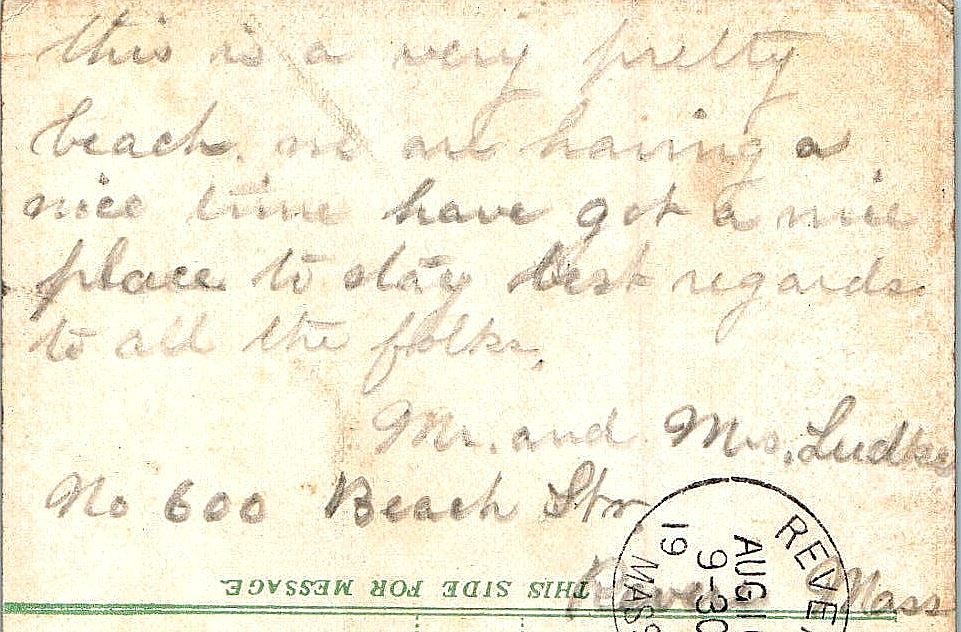 this is a very pretty
beach. we are having a
nice time have got a nice
place to stay best regards
to all the folks.
Mr. and Mrs. Ludke
No 600 Beach Str.
Revere Mass
THIS SIDE FOR MESSAGE.
REVE
AUG
9-30
19
MASS